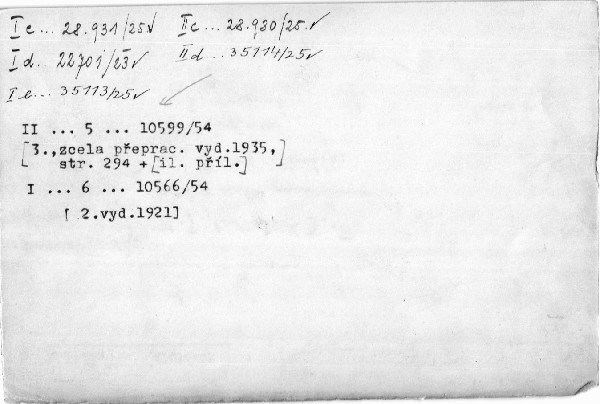 I c... 28.931/25✓ II c... 28.930/25.✓
I d. 22701/23✓ II d...35114/25✓
I e... 35113/25✓
II ... 5 ... 10599/54
[3.,zcela přeprac. vyd.1935,
str. 294 +[il. příl.]]
I ... 6 ... 10566/54
[ 2.vyd.1921]